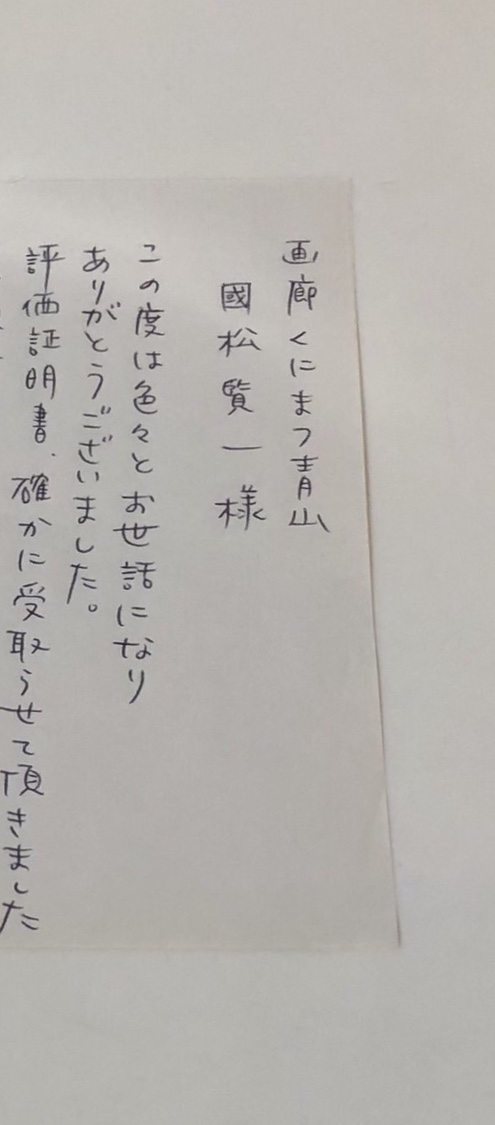 画廊くにまつ青山
國松賢一様
この度は色々とお世話になり
ありがとうございました。
評価証明書、確かに受取らせて頂きました